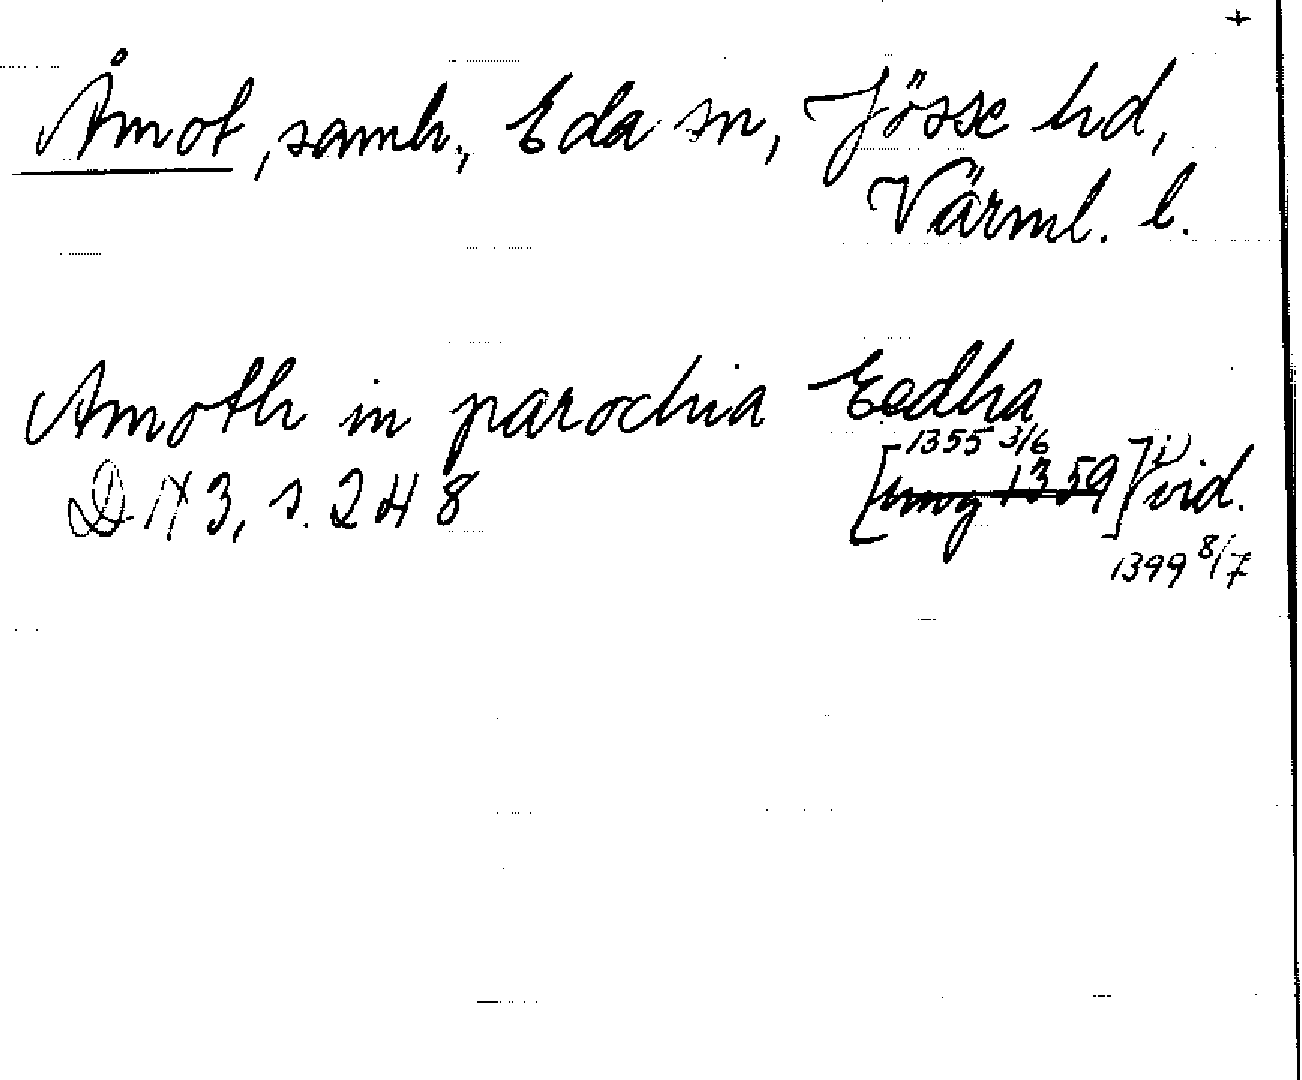 +
Åmot, samh., Eda sn, Jösse hd,
Värml. l.
Amoth in parochia Eedha
1355 3/6
DN 3, s. 248 [omg 1359] i vid.
1399 8/7